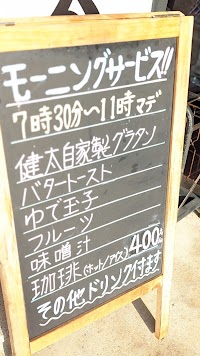 モーニングサービス!!
7時30分〜11時マデ
健太自家製グラタン
バタートースト
ゆで玉子
フルーツ
味噌汁
珈琲(ホット/アイス)400円
その他ドリンク付ます